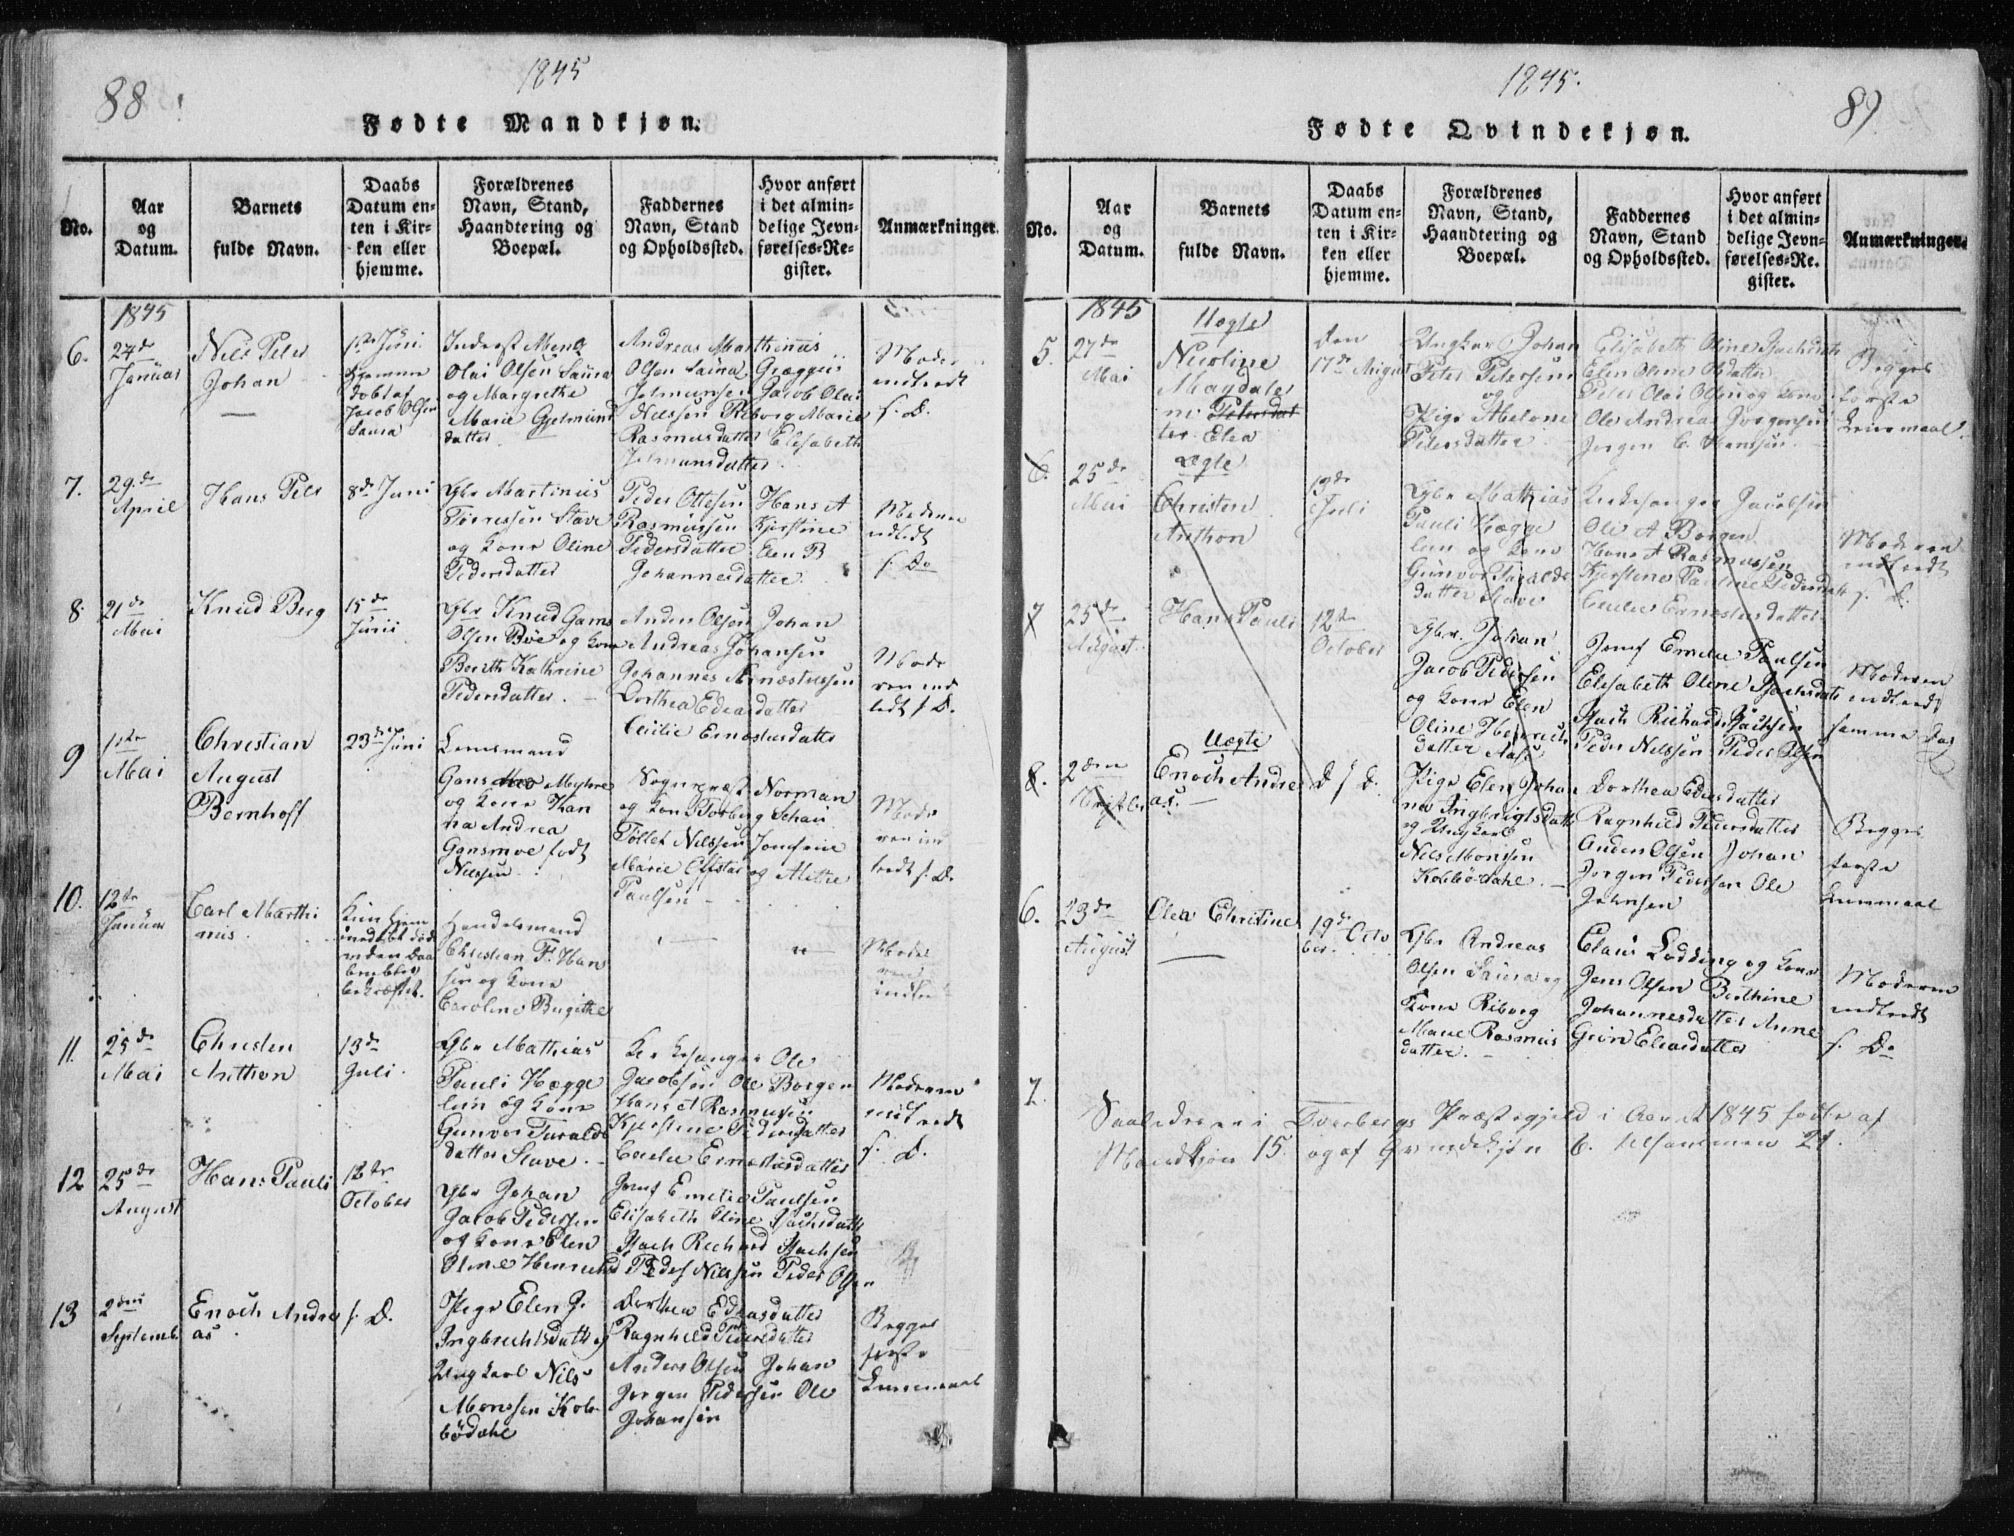 88
1845
Fødte Mandkjøn.
No.
Aar
og
Datum.
Barnets
fulde Navn.
Daabs
Datum en-
ten i Kir-
ken eller
hjemme.
Forældrenes
Navn, Stand,
Haandtering og
Boepæl.
Faddernes
Navn, Stand
og Opholdssted.
Hvor anført
i det almin-
delige Jevn-
førelses-Re-
gister.
Anmærkninger.
1845
6.
27de
Januar
Nils Peter
Johan
1ste Juni
hjemme
døbt af
Jacob Olsen
Saura
Inderst
Olai Olsen Saura
og Margrethe
Marie Gjelmund
datter
Andreas Marthinus
Olsen Saura
Jacob Olai
Nilssen Riborg Marie
Rasmusdatter Elisabeth
Moder
indledt
s. D.
7.
29de
April
Hans Peter
8de Juni
Gbr Martinus
Stave
og Kone Oline
Pedersdatter
Peder Ottesen Hans A
Rasmussen Kjerstine
Pedersdatter Elen B
Johannesdatter
Moderen
indledt
s. Do
8.
21de
Mai
Knud Berg
15de
Junii
Gbr Knud Gams
Olsen Bøe og Kone
Berith Kathrine
Pedersdatter.
Anders Olsen Johan
Andreas Johansen
Johannes Ernestussen
Dorthea Edeasdatter
Cecilie Ernestusdatter
Mode
ren ind
ledt s. D.
9
11te
Mai
Christian
August
Bernhoff
23de Juni
Lensmand
Gans Moe Myhre
og Kone Han
na Andrea
Gansmoe født
Nilssen
Sognepræst Norman
og Kone Torberg Schau
Tollef Nilssen Jomfruee
Marie Olfstad og Mette
Paulsen
Mode
ren in
tredt s. D.
10.
12te
Januar
Carl Marthi
nus.
Kun hjem
medøbt død
inden Daa
ben blev
bekræftet.
Handelsmand
Christian F. Han
sen og Kone
Caroline Birgithe
"
Mode
ren
indtr
11.
25de
Mai
Christen
Anthon
13de
Juli
Gbr Mathias
Pauli Hægge
lein og Kone
Gunver Taralds
datter Stave.
Kirkesanger Ole
Jacobsen Ole Borgen
Hans A Rasmussen
Kjerstine Pedersdatter
Cecilie Ernestusdatter
Moderen
indtredt
s. D.
12
25de
August
Hans Pauli
12te
October
Gbr Johan
Jacob Pedersen
og Kone Elen
Oline Henrichsd
Jomf Emelie Paulsen
Elisabeth Oline Isachsdatt
Isach Richard Isachsen
Peder Nilssen Peder Olsen
13
2den
Septemb.
Enoch Andre
as
s. D.
Pige Elen J.
Ingbrechtsdatt og
Ungkarl Nils
Monssen Kob-
bødahl
Dorthea Edeasdatter
Ragnhild Pedersdatter
Anders Olsen Johan
Jørgen Pedersen Ole
Johansen
Begges
første
Leiermaal
1845.
89
Fødte Qvindekjøn.
No.
Aar
og
Datum.
Barnets
fulde Navn.
Daabs
Datum en-
ten i Kir-
ken eller
hjemme.
Forældrenes
Navn, Stand,
Haandtering og
Boepæl.
Faddernes
Navn, Stand
og Opholdssted.
Hvor anført
i det almin-
delige Jevn-
førelses-Re-
gister.
Anmærkninger.
1845
5.
27de
Mai
Uægte
Nicoline
Magdale
ne Petersdat
ter Elea
den
17de August
Ungkar Johan
Peter Petersen
og
Pige Abelone
Petersdatter
Elisabeth Oline Isachsdatt
Elen Oline Olsdatter
Peter Olai Olsen og Kone
Ole Andreas Jørgensen
Jørgen C. Hanssen
Begges
første
Leiermaal.
6.
25de
Mai
Ægte
Christen
Anthon
13de
Juli
Gbr Mathias
Pauli Hægge
lein og Kone
Gunver Taralds
datter Stave
Kirkesanger Jacobsen
Ole A Borgen
Hans A Rasmussen
Kjerstene Pauline Pedersdatt
Cecilie Ernestusdatter
Moderen
indtredt
s. D.
7
25de
August
Hans Pauli
12te
October
Gbr. Johan
Jacob Pedersen
og Kone Elen
Oline Henrichs
datter Aase
Jomf Emelie Paulsen
Elisabeth Oline Isachsdatt
Isach Richard Isachsen
Peder Nilssen Peder Olsen
Moderen
indtredt
samme Dag
8.
2den
Uægte
Enoch Andre
as.
D s D.
Pige Elen Johan
na Ingbrigtsdatt
og Ungkarl
Nils Monssen
Kobbødahl.
Dorthea Edeasdatter
Ragnhild Pedersdatter
Anders Olsen Johan
Jørgen Pederssen Ole
Johnsen
Begges
første
Leiermaal
6.
23de
August
Olea Christine
19de Octo
ber.
Gbr Andreas
Olsen Saura og
Kone Riborg
Marie Rasmus
datter.
Claus Lødding og Kone
Jens Olsen Berthine
Johannesdatter Anne
Grøn Eliasdatter
Moderen
indtredt
s. Do
7.
Saaledes ere i Dverbergs Præstegjeld i Aaret 1845 fødte af
Mandkjøn 15. og af Qvindekjøn 6. tilsammen 21.